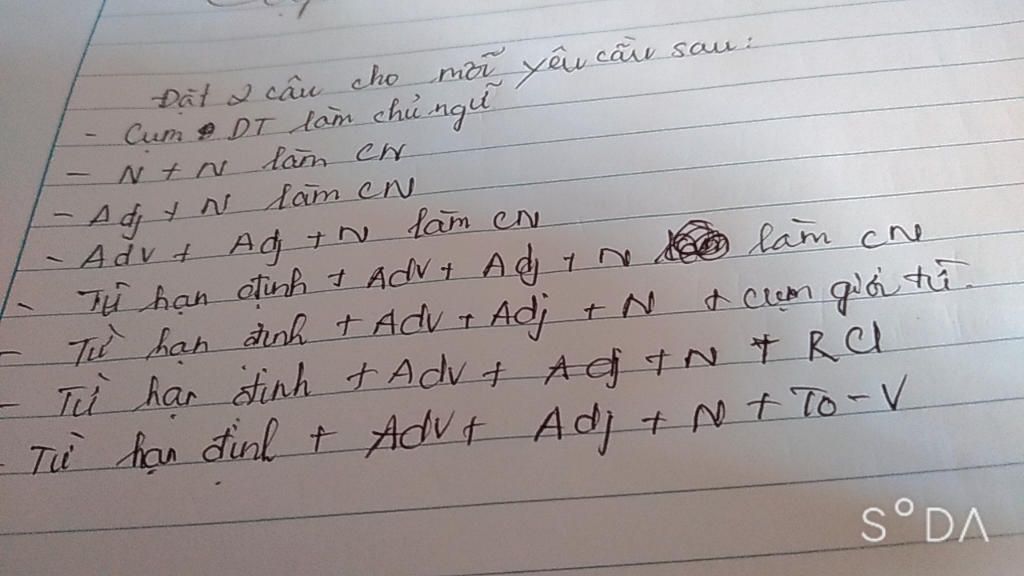 Đặt 2 câu cho mỗi yêu cầu sau:
- Cụm DT làm chủ ngữ
- N + N làm CN
- Adj + N làm CN
- Adv + Adj + N làm CN
- Từ hạn định + Adv + Adj + N làm CN
- Từ hạn định + Adv + Adj + N + cụm giới từ.
- Từ hạn định + Adv + Adj + N + RCl
- Từ hạn định + Adv + Adj + N + To-V
S°DA